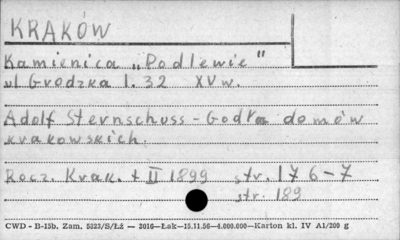 KRAKÓW
Kamienica „Podlewie"
ul Grodzka l. 32 XV w.
Adolf Sternschuss - Godła domów
krakowskich.
Rocz. Krak. t II 1899 str. 176-7
str. 189
CWD - B-15b, Zam. 5323/S/Łż — 3016—Łak—15.11.50—4.000.000—Karton kl. IV A1/200 g